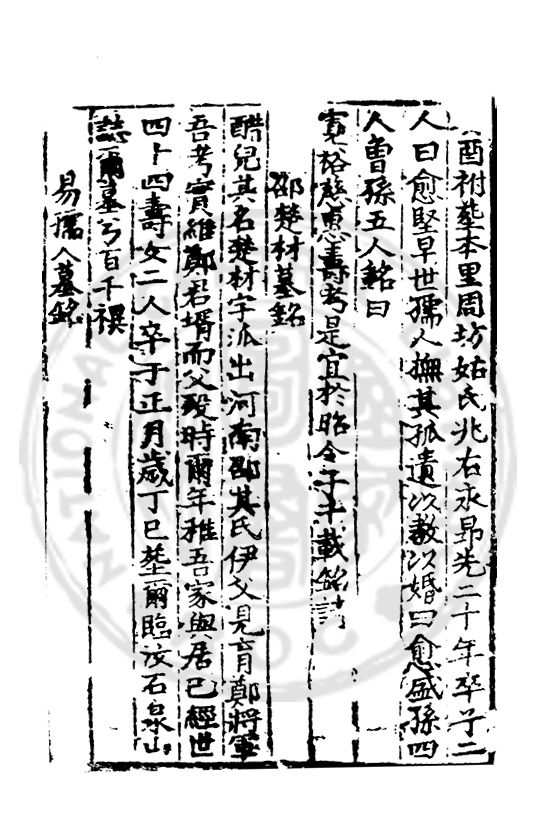 酉祔塟本里周坊姑氏兆右永昴先二十年卒子二
人曰愈堅早世孺人撫其孤遺以教以婚曰愈盛孫四
人曾孫五人銘曰
寛裕慈惠壽考是宜於昭令子千載銘詩
邵楚材墓銘
醋兒其名楚材字派出河南邵其氏伊父見育鄭將軍
吾考實維鄭君壻而父歿時爾年稚吾家與居已經世
四十四壽女二人卒于正月歲丁巳塟爾臨汝石泉山
誌爾墓兮百千禩
易孺人墓銘